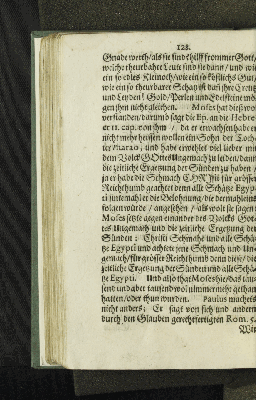 128.
Gnade werth / als sie sind (hilff frommer Gott /
welche theurbahre Leute sind sie dann / und wie
ein so edles Kleinoch / wie ein so köstlichs Gut /
wie ein so theurbarer Schatz ist dañ ihre Creutz
und Leyden! Gold / Perlen und Edelsteine mö-
gen ihm nicht gleichen. Moses hat dieß wol
verstanden / darumb sagt die Ep. an die Hebre-
er 11. cap. von ihm / da er erwachsen / habe er
nicht mehr heissen wollen ein Sohn der Toch-
ter Pharao / und habe erwehlet viel lieber mit
dem Volck Gottes Ungemach zu leiden / dann
die zeitliche Ergetzung der Sünden zu haben /
ja er habe die Schmach Christi für grösser
Reichthumb geachtet denn alle Schätze Egyp-
ti unternahlet die Belohnung / die dermahleinst
folgen würde / angesehen / als wolt sie sagen:
Moses setzte gegen einander des Volcks Got-
tes Ungemach und die zeitliche Ergetzung der
Sünden: Christi Schmache und alle Schä-
tze Egypti und achtete jene Schmach und Un-
gemach / für grösser Reichthumb denn diese / die
zeitliche Ergetzung der Sünden und alle Schä-
tze Egypti. Und also that Moses hie / das tau-
send und aber tausend wol nimmermehr gethan
hatten / oder thun wurden. Paulus machets
nicht anders; Er sagt von sich und andern
durch den Glauben gerechtfertigten Rom. 5.
Wir